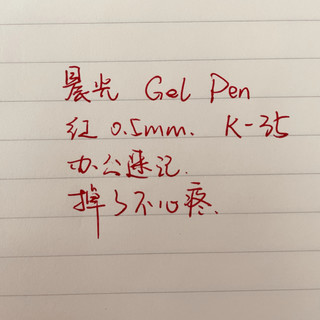 晨光 Gel Pen
红 0.5mm. K-35
办公速记.
掉了不心疼.